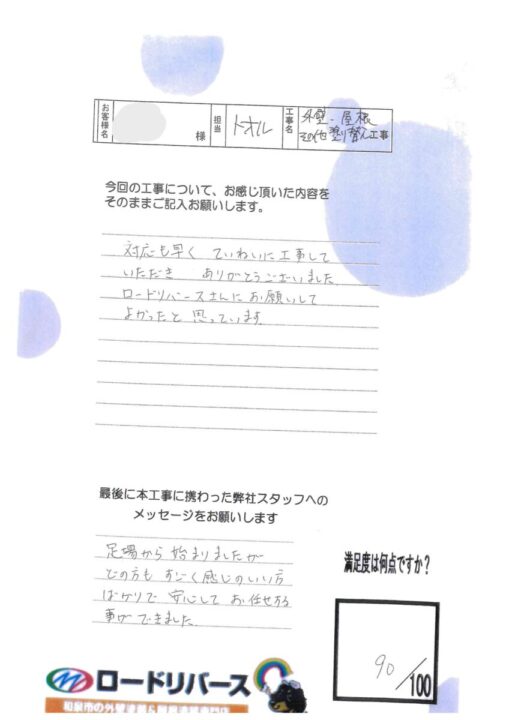 お客様名 様 担当 トオル 工事名 外壁・屋根
その他塗り替え工事
今回の工事について、お感じ頂いた内容を
そのままご記入お願いします。
対応も早く ていねいに工事して
いただき ありがとうございました。
ロードリバースさんにお願いして
よかったと思っています。
最後に本工事に携わった弊社スタッフへの
メッセージをお願いします
足場から始まりましたが
どの方もすごく感じのいい方
ばかりで安心してお任せする
事ができました。
満足度は何点ですか?
90/100
ロードリバース
和泉市の外壁塗装&屋根塗装専門店